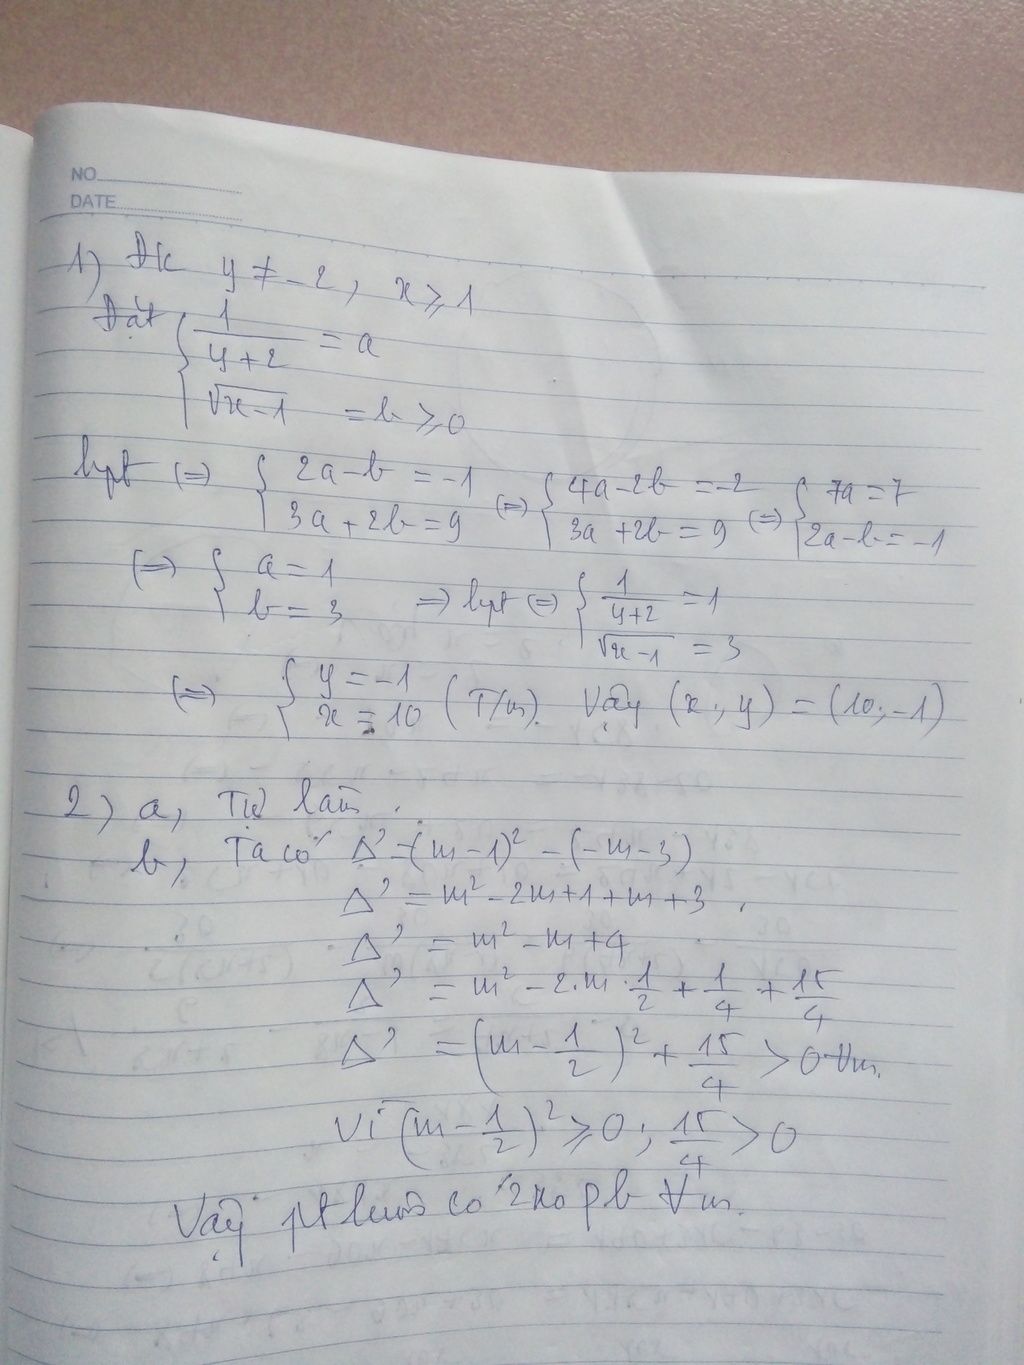 NO
DATE
1) Đk y ≠ -2, x ⩾ 1
Đặt { 1/(y+2) = a
√(x-1) = b ⩾ 0
hpt (=) { 2a-b = -1 (=) { 4a-2b = -2 (=) { 7a = 7
3a + 2b = 9 3a + 2b = 9 2a-b = -1
(=) { a = 1 => hpt (=) { 1/(y+2) = 1
b = 3 √(x-1) = 3
(=) { y = -1
x = 10 (T/m). Vậy (x; y) = (10; -1)
2) a, Tự làm.
b, Ta có Δ' = (m-1)² - (-m-3)
Δ' = m² - 2m+1+m+3.
Δ' = m² - m + 4
Δ' = m² - 2.m.1/2 + 1/4 + 15/4
Δ' = (m - 1/2)² + 15/4 > 0 ∀m.
Vì (m - 1/2)² ⩾ 0; 15/4 > 0
Vậy pt luôn có 2 no pb ∀m.